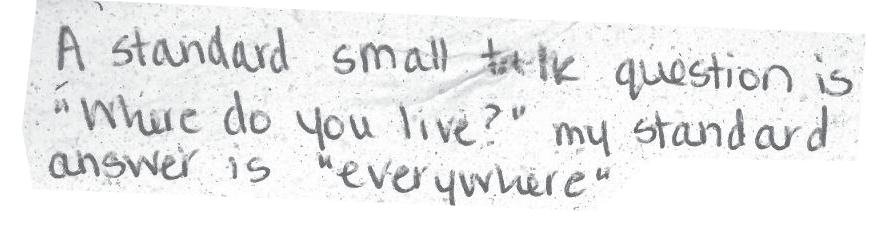 A standard small talk question is
"Where do you live?" my standard
answer is "everywhere"